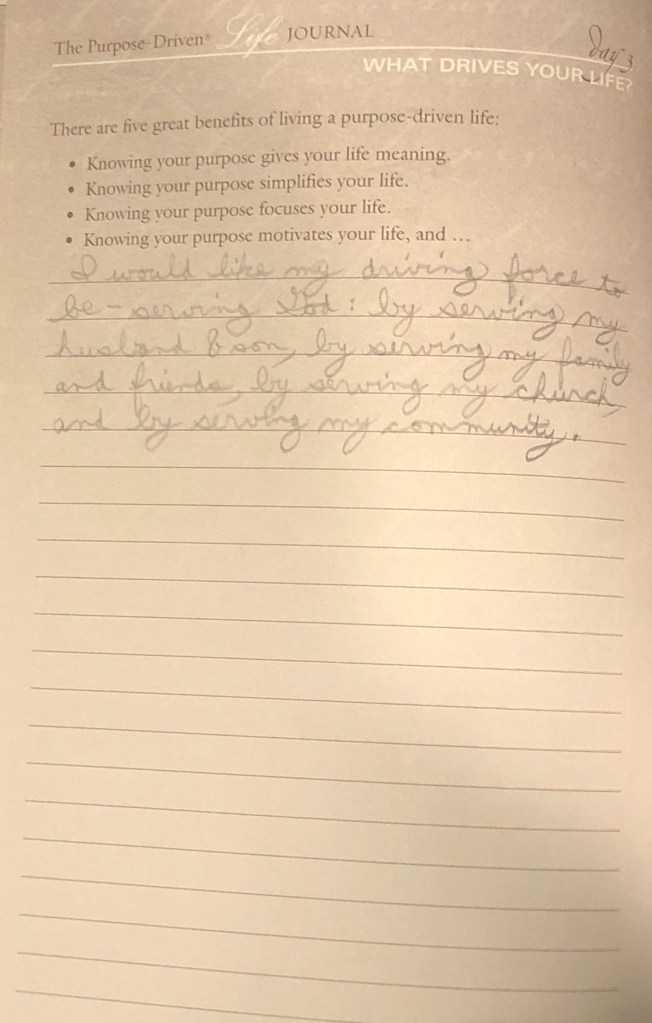 The Purpose-Driven® Life JOURNAL
Day 3
WHAT DRIVES YOUR LIFE?
There are five great benefits of living a purpose-driven life:
• Knowing your purpose gives your life meaning.
• Knowing your purpose simplifies your life.
• Knowing your purpose focuses your life.
• Knowing your purpose motivates your life, and ...
I would like my driving force to
be - serving God: by serving my
husband & son, by serving my family
and friends, by serving my church,
and by serving my community.